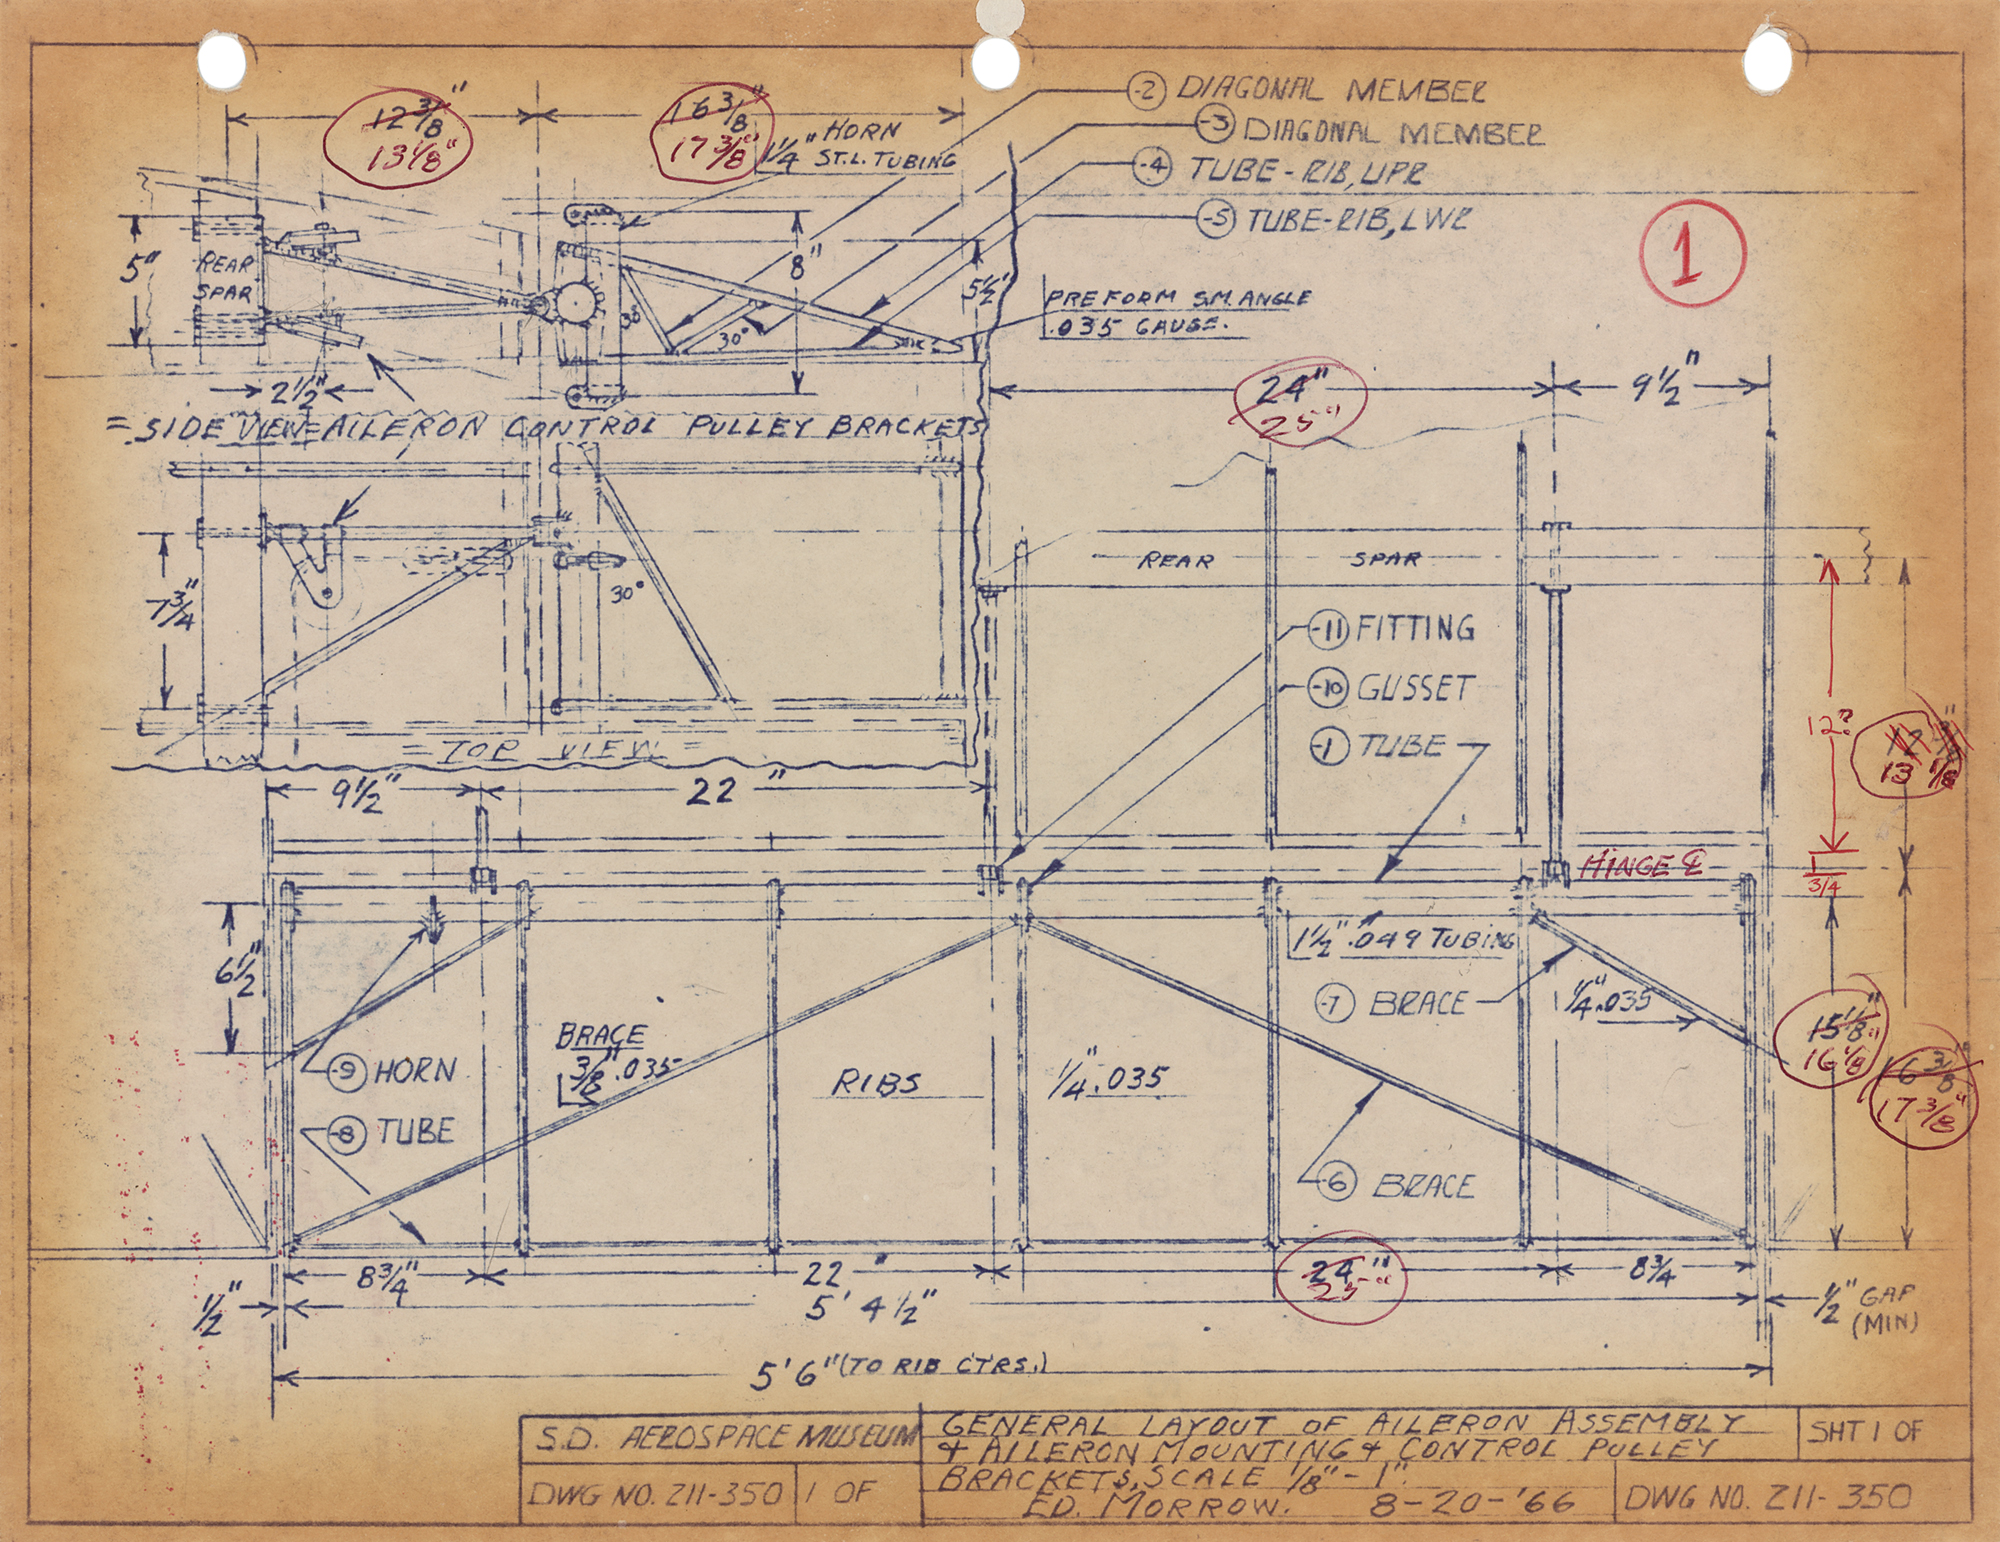 12 3/8"
13 1/8"
16 3/8"
17 3/8"
HORN
1 1/4" ST.L. TUBING
-2 DIAGONAL MEMBER
-3 DIAGONAL MEMBER
-4 TUBE-RIB, UPR
-5 TUBE-RIB, LWR
1
5"
REAR
SPAR
8"
5 1/2"
30°
PREFORM S.M. ANGLE
.035 GAUGE.
2 1/2"
= SIDE VIEW = AILERON CONTROL PULLEY BRACKETS
24"
25"
9 1/2"
7 3/4"
30°
REAR SPAR
-11 FITTING
-10 GUSSET
-1 TUBE
12?
13 1/8
= TOP VIEW =
9 1/2"
22"
HINGE ℄
1
3/4
6 1/2"
1 1/2" .049 TUBING
-7 BRACE
1/4" .035
15 1/8"
16 1/8"
16 3/8"
17 3/8"
BRACE
3/8" .035
-9 HORN
-8 TUBE
RIBS 1/4" .035
-6 BRACE
8 3/4"
22"
24"
25"
8 3/4
1/2"
5' 4 1/2"
1/2" GAP
(MIN)
5' 6" (TO RIB CTRS.)
S.D. AEROSPACE MUSEUM
DWG NO. Z11-350 1 OF
GENERAL LAYOUT OF AILERON ASSEMBLY
& AILERON MOUNTING & CONTROL PULLEY
BRACKETS, SCALE 1/8" - 1".
ED. MORROW. 8-20-'66
SHT 1 OF
DWG NO. Z11-350